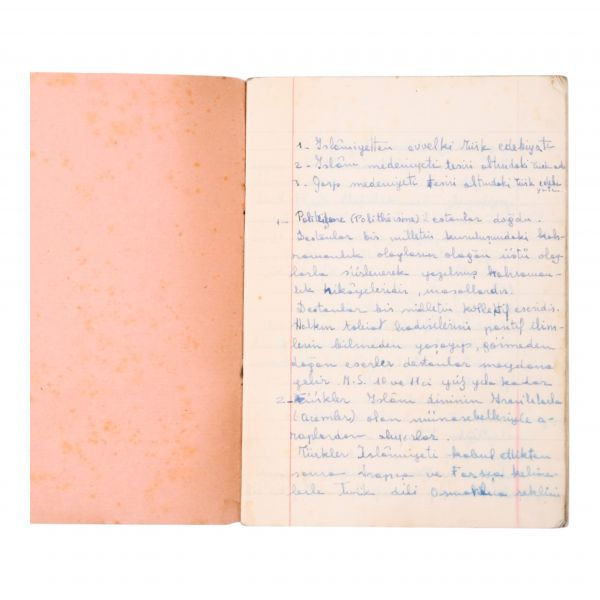 1 - İslâmiyetten evvelki Türk edebiyatı
2 - İslâm medeniyeti tesiri altındaki Türk ede
3 - Garp medeniyeti tesiri altındaki Türk edebi
1 - (Polithéisme) destanlar doğdu.
Destanlar bir milletin kuruluşundaki kah-
ramanlık olaylarının olağan üstü olay-
larla süslenerek yazılmış kahraman-
lık hikâyeleridir, masallardır.
Destanlar bir milletin kollektif eseridir.
Halkın tabiat hadiselerini pozitif ilim-
lerin bilmeden yaşayıp, görmeden
doğan eserler destanlar meydana
gelir. M.S. 10 ve 11ci yüz yıla kadar
2 - Türkler İslâm dinini
(acemler) olan münasebetleriyle a-
raplardan alıyorlar.
Türkler İslâmiyeti kabul ettikten
sonra Arapça ve Farsça kelime-
lerle Türk dili Osmanlıca şeklini